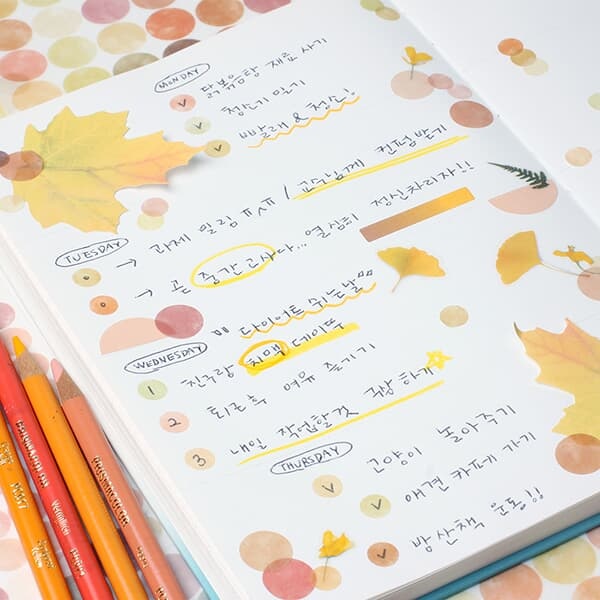 MONDAY
닭볶음탕 재료 사기
청소기 밀기
빨래 & 청소!
TUESDAY
→ 과제 밀림 ㅠㅅㅠ / 교수님께 컨펌받기
→ 곧 중간고사다... 열심히 정신차리자!!
다이어트 쉬는날
WEDNESDAY
1 친구랑 치맥 데이뚜
2 퇴근후 여유 즐기기
3 내일 작업할것 구상 하기
THURSDAY
고양이 놀아주기
애견 카페 가기
밤산책 운동!!